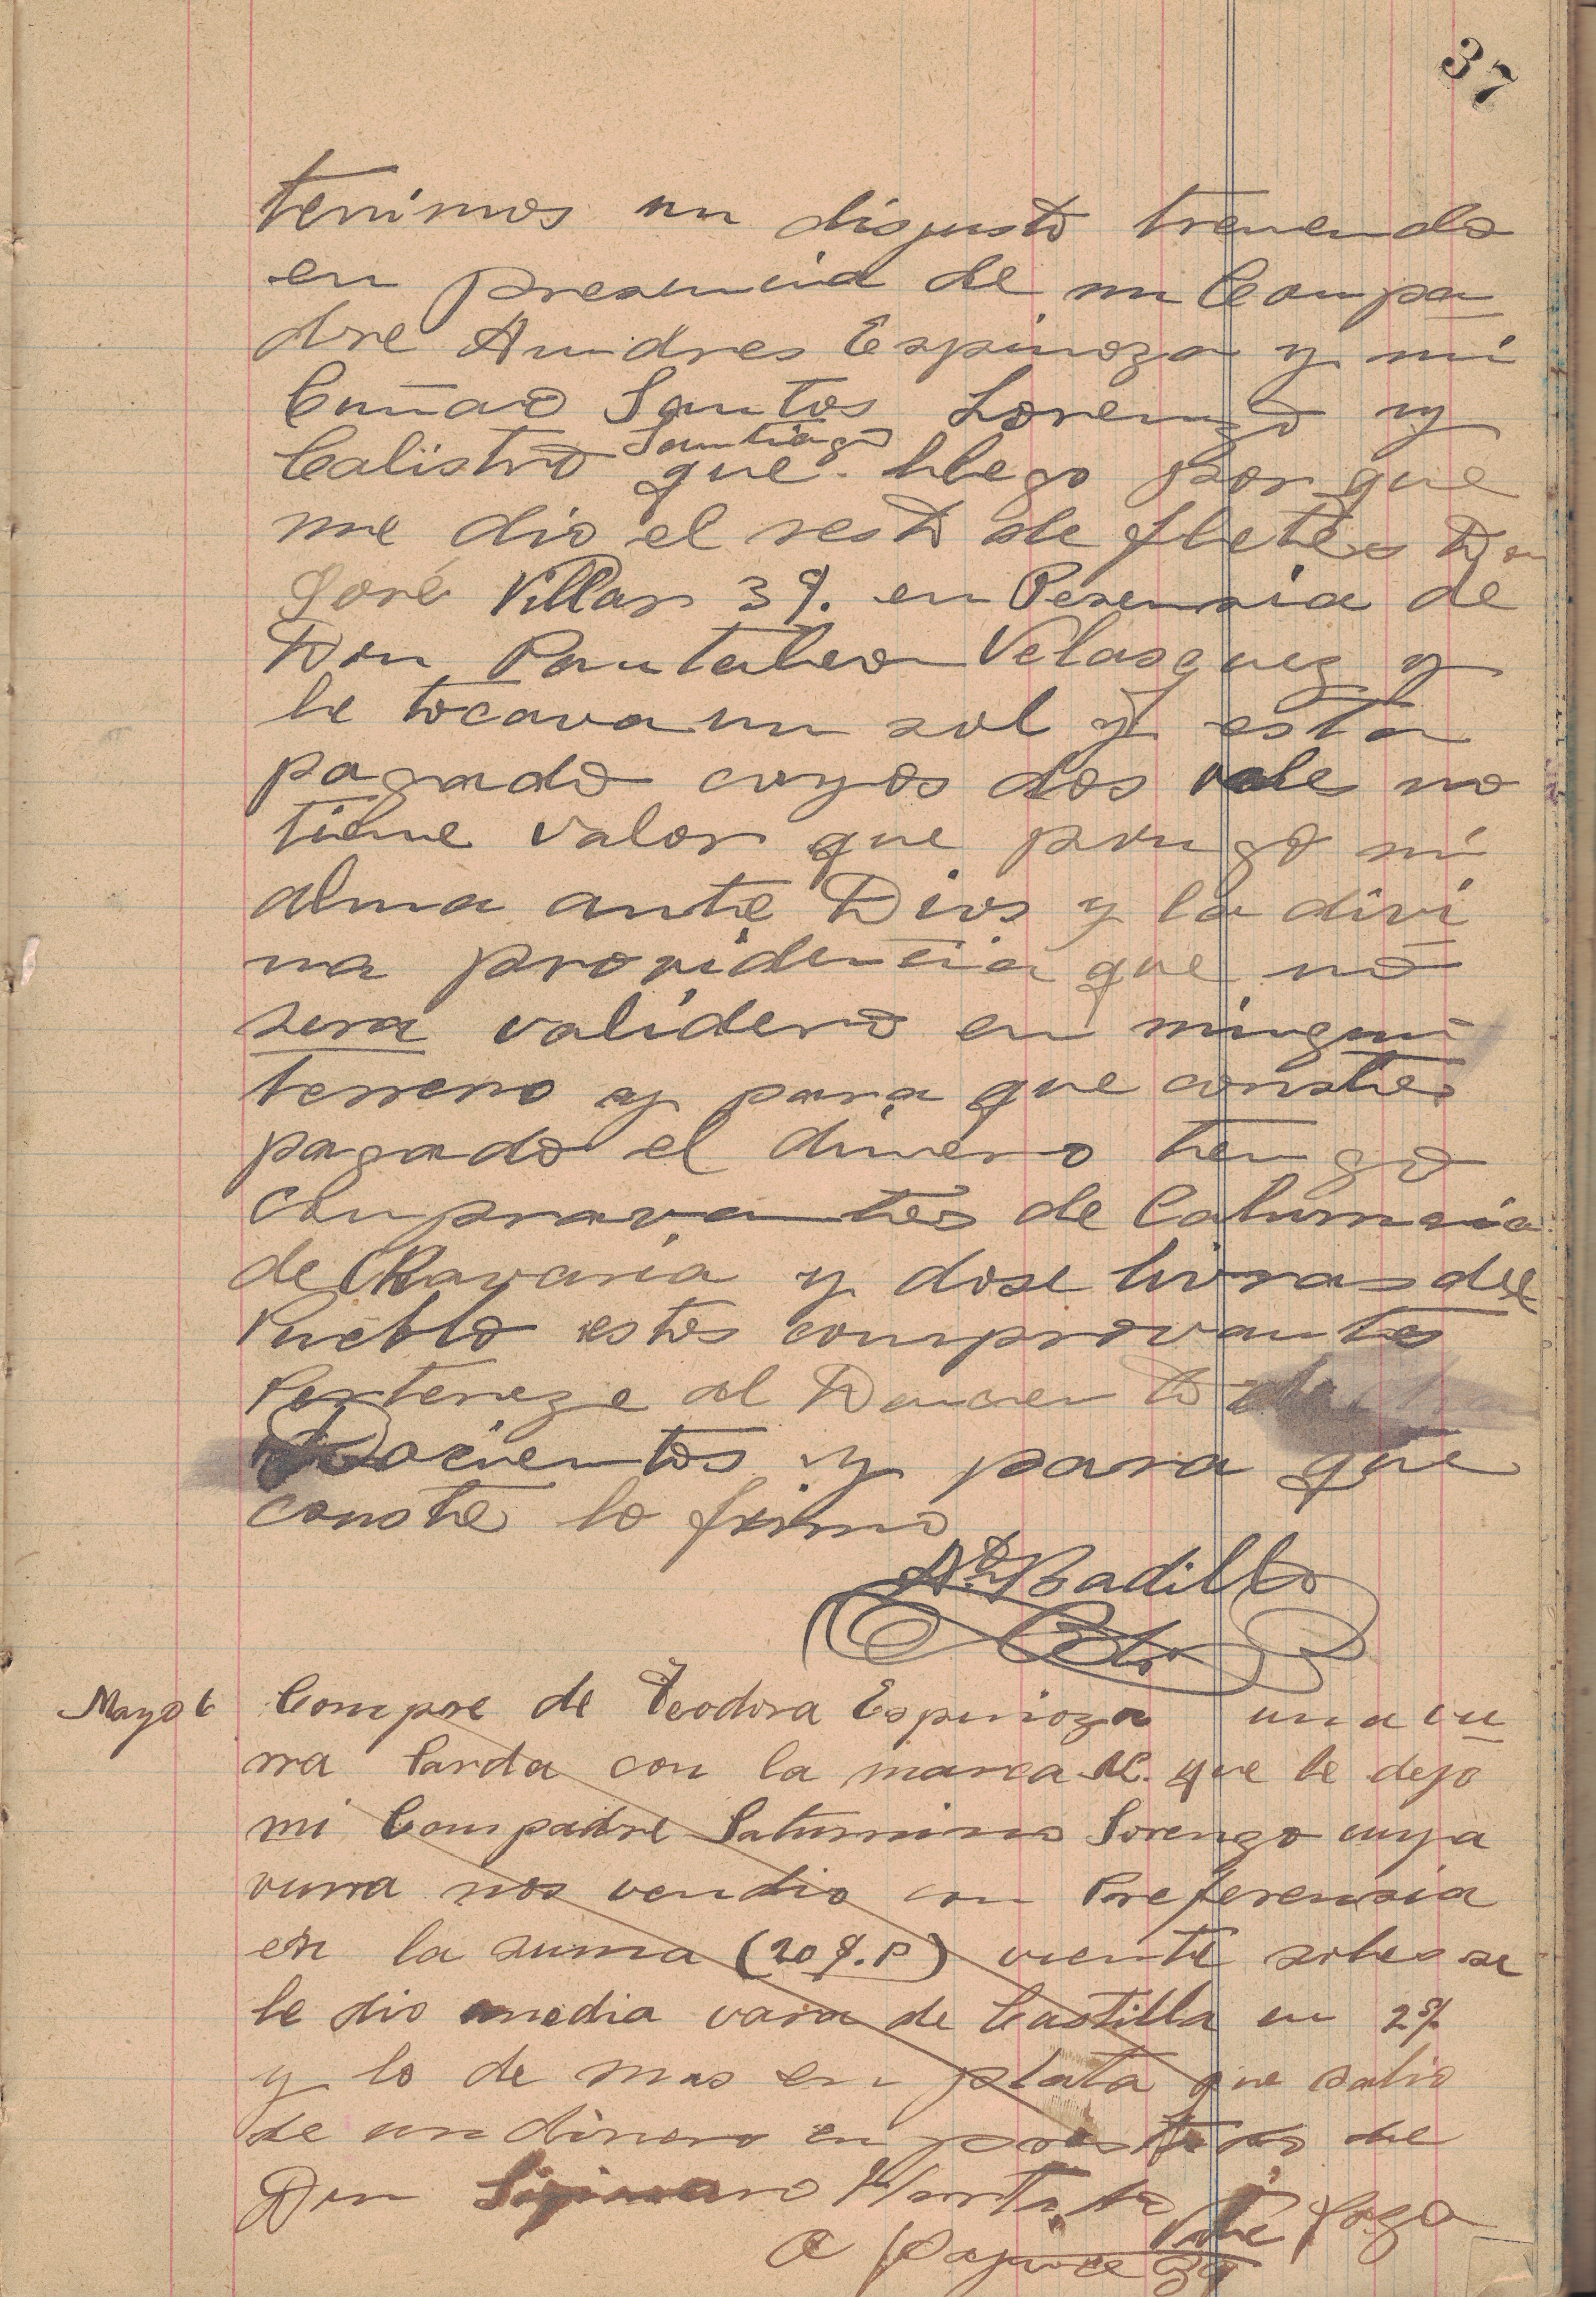 37
tenimos un disgusto tremendo
en presencia de mi Compa
dre Andres Espinoza y mi
Cuñao Santos Lorenzo y
Santiago
Calistro que llego porque
me dio el resto de fletes Don
José Villar 3 $. en Presensia de
Don Pantaleon Velasquez y
le tocava un sol y esta
pagado cuyos dos vale no
tiene valor que pongo mi
alma ante Dios y la divi
na providencia que no
sera validero en ningun
terreno y para que conste
pagado el dinero tengo
comprovantes de Calumnia
de Ravaria y dose livras del
Pueblo estos comprovantes
Perteneze al
Docientos y para que
conste lo firmo
Badillo
Mayo 6 Compre de Teodora Espinoza una vu
rra Parda con la marca que le dejo
mi Compadre Saturnino Lorenzo cuya
vurra nos vendio con Preferensia
en la suma (20 $. P) viente soles se
le dio media vara de Castilla en 2 $.
y lo de mas en plata que salio
de un dinero en prestados de
Don
a